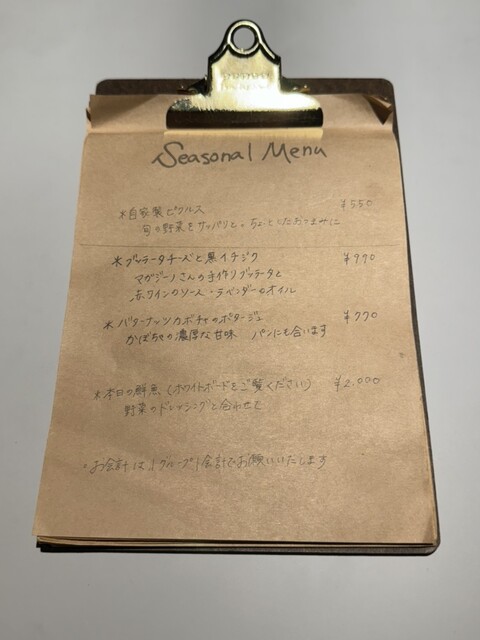 Seasonal Menu
*自家製ピクルス ¥550
旬の野菜をサッパリと。ちょっとしたおつまみに
*ブッラータチーズと黒イチジク ¥990
マガジーノさんの手作りブッラータと
赤ワインのソース・ラベンダーのオイル
*バターナッツカボチャのポタージュ ¥770
かぼちゃの濃厚な甘味 パンにも合います
*本日の鮮魚(ホワイトボードをご覧ください) ¥2,000
野菜のドレッシングと合わせて
・お会計は、1グループ1会計でお願いいたします